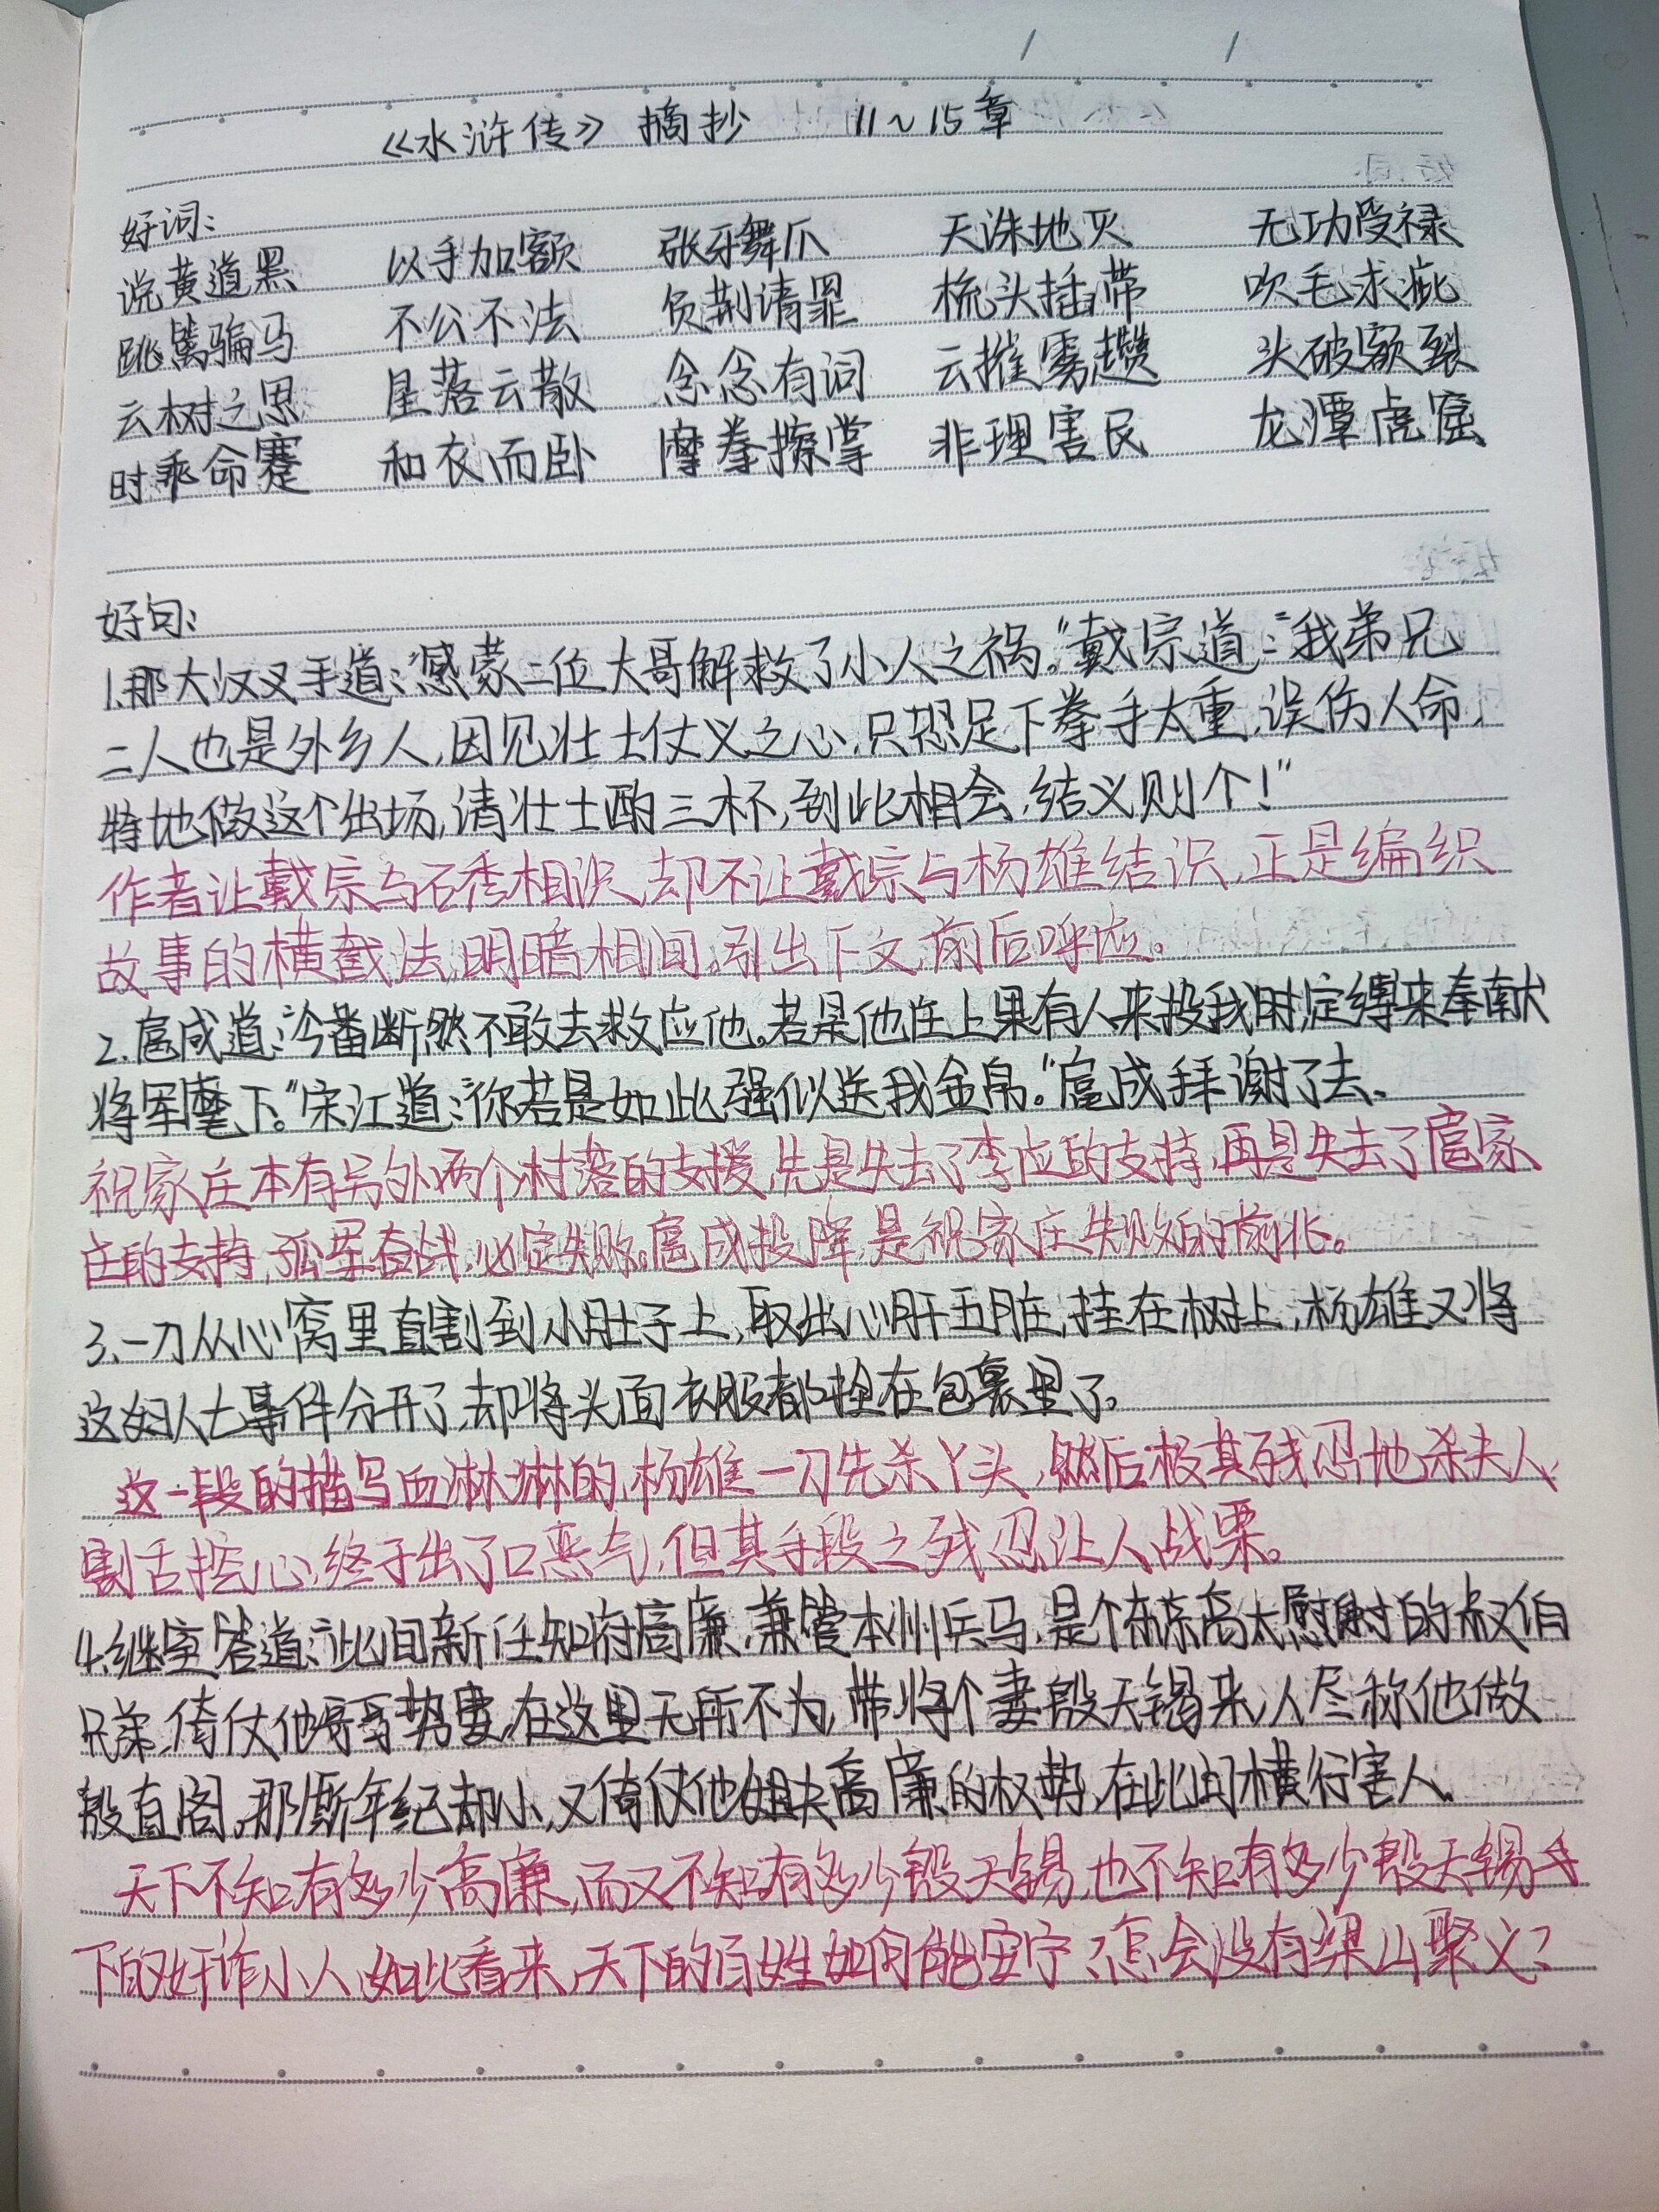 《水浒传》 摘抄 11～15章
好词:
说黄道黑 以手加额 张牙舞爪 天诛地灭 无功受禄
跳篱骗马 不公不法 负荆请罪 梳头插带 吹毛求疵
云树之思 星落云散 念念有词 云摧雾趱 头破额裂
时乖命蹇 和衣而卧 摩拳擦掌 非理害民 龙潭虎窟
好句:
1.那大汉叉手道:“感蒙二位大哥解救了小人之祸。”戴宗道:“我弟兄
二人也是外乡人,因见壮士仗义之心,只恐足下拳手太重,误伤人命,
特地做这个出场,请壮士酌三杯,到此相会,结义则个!”
作者让戴宗与石秀相识,却不让戴宗与杨雄结识,正是编织
故事的横截法,明暗相间,引出下文,前后呼应。
2.扈成道:“今番断然不敢去救应他。若是他庄上果有人来投我时,定缚来奉献
将军麾下。”宋江道:“你若是如此,强似送我金帛。”扈成拜谢了去。
祝家庄本有另外两个村落的支援,先是失去了李应的支持,再是失去了扈家
庄的支持,孤军奋战,必定失败。扈成投降,是祝家庄失败的前兆。
3.一刀从心窝里直割到小肚子上,取出心肝五脏,挂在树上,杨雄又将
这妇人七事件分开了,却将头面衣服都拴在包裹里了。
这一段的描写血淋淋的,杨雄一刀先杀丫头,然后极其残忍地杀夫人,
割舌挖心,终于出了口恶气,但其手段之残忍,让人战栗。
4.继室答道:“此间新任知府高廉,兼管本州兵马,是个东京高太尉的叔伯
兄弟,倚仗他哥哥势要,在这里无所不为,带将个妻殷天锡来,人尽称他做
殷直阁。那厮年纪却小,又倚仗他姐夫高廉的权势,在此间横行害人。
天下不知有多少高廉,而又不知有多少殷天锡,也不知有多少殷天锡手
下的奸诈小人,如此看来,天下的百姓如何能安宁?怎会没有梁山聚义?